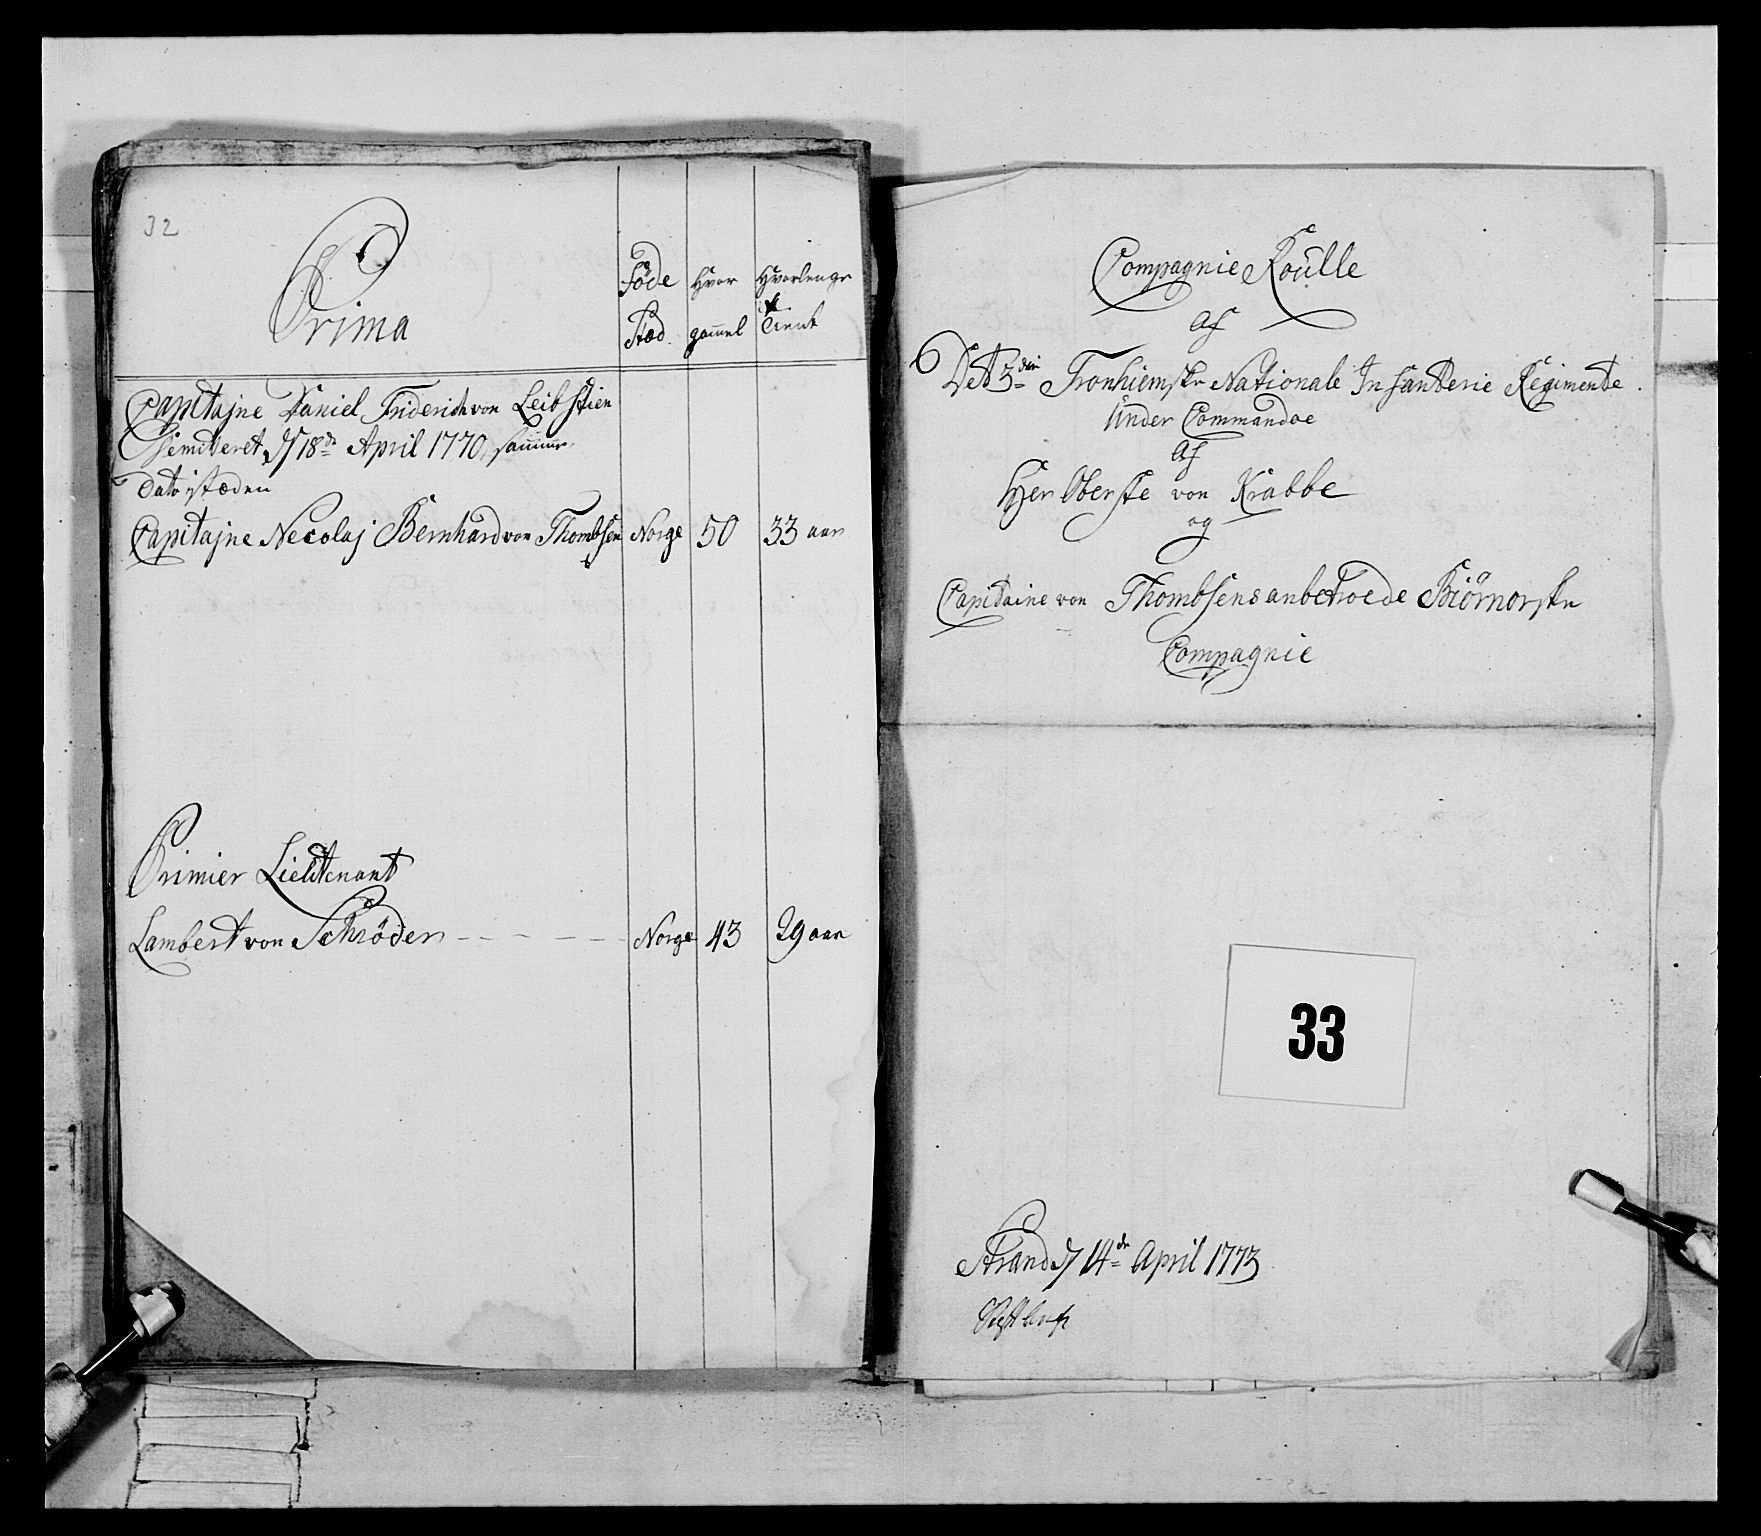 32
Prima
Föde Hvor Hvorlenge
Stæd gam̄el Tient
Capitajne Daniel Friderich von Leibstien
Demitteret d 18de April 1770, sam̄me
Dato i stæden
Capitajne Necolaj Bernhard von Thombsen Norge 50 33 aar
Primier Lieutenant
Lambert von Schröder Norge 43 29 aar
Compagnie Roulle
Af
Det 3die Tronhiemske Nationale Infanterie Regimente.
Under Commandoe
Af
Her Oberste von Krabbe
og
Capitaine von Thombsens anbetroede Biörnorske
Compagnie
33
Strand d 14de April 1773